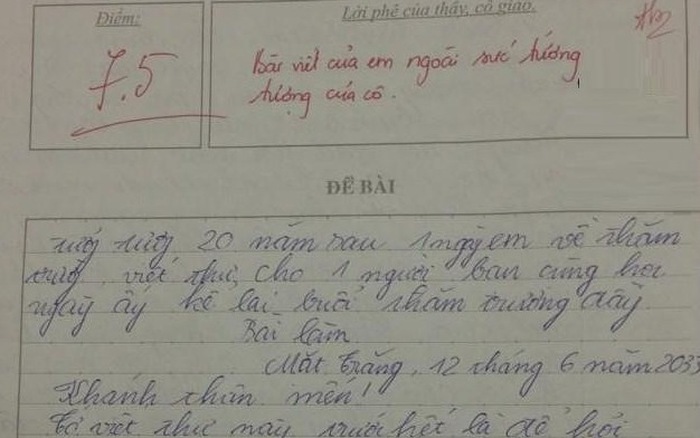 Điểm:
Lời phê của thầy, cô giáo.
7.5
Bài viết của em ngoài sức tưởng
tượng của cô.
ĐỀ BÀI
20 năm sau 1 ngày em về thăm
trường, viết thư cho 1 người bạn cùng học
ngày ấy kể lại buổi thăm trường đầy
Bài làm
Mặt trăng, 12 tháng 6 năm 2033
Khanh thân mến!
Tớ viết thư này trước hết là để hỏi